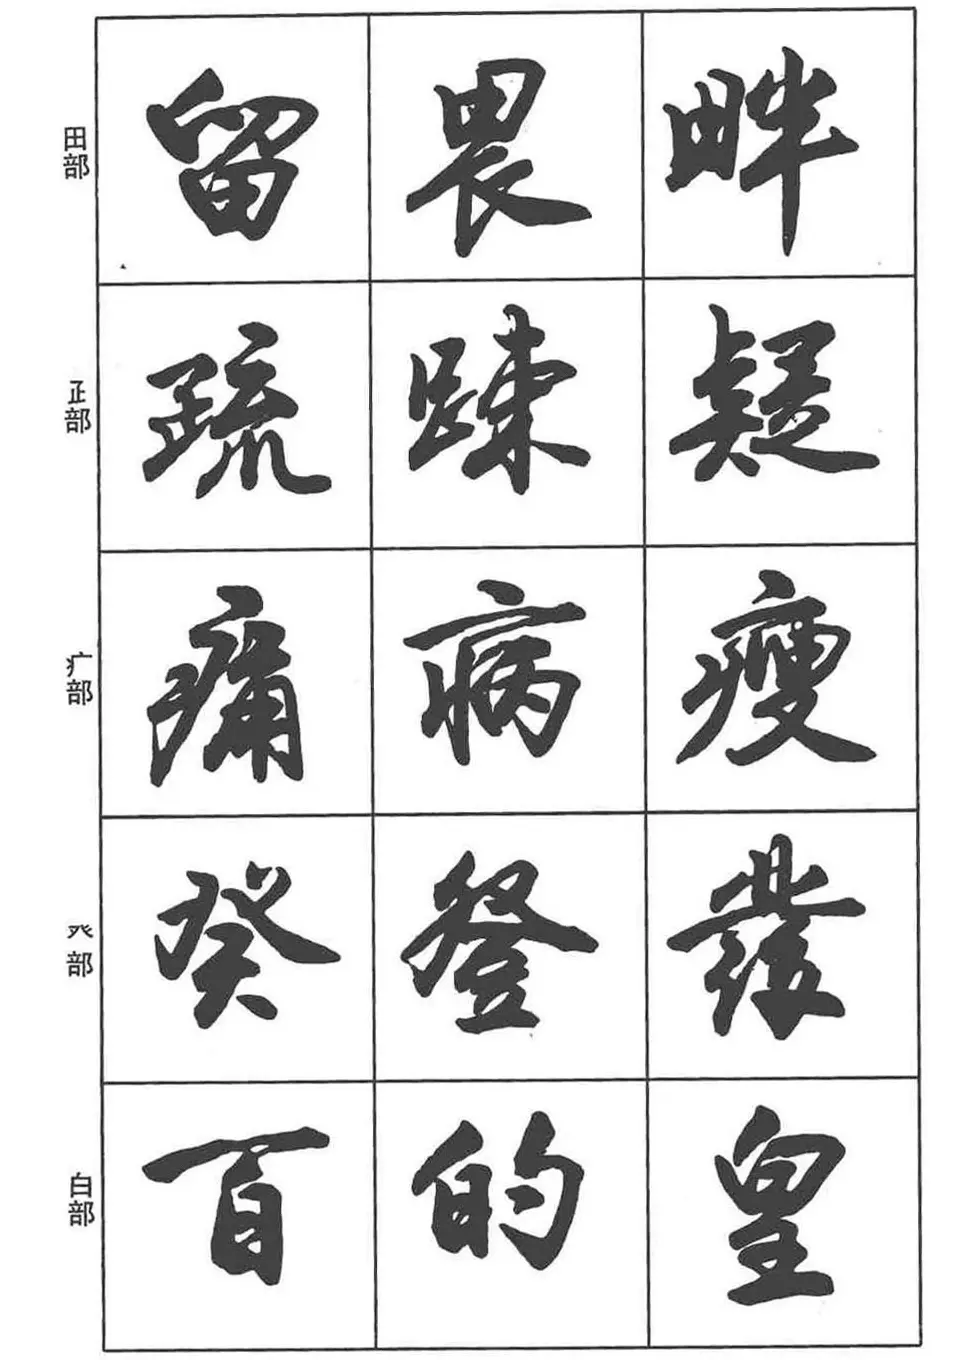 田部 留 畏 畔
疋部 疏 踈 疑
疒部 痛 病 瘦
癶部 癸 登 發
白部 百 的 皇